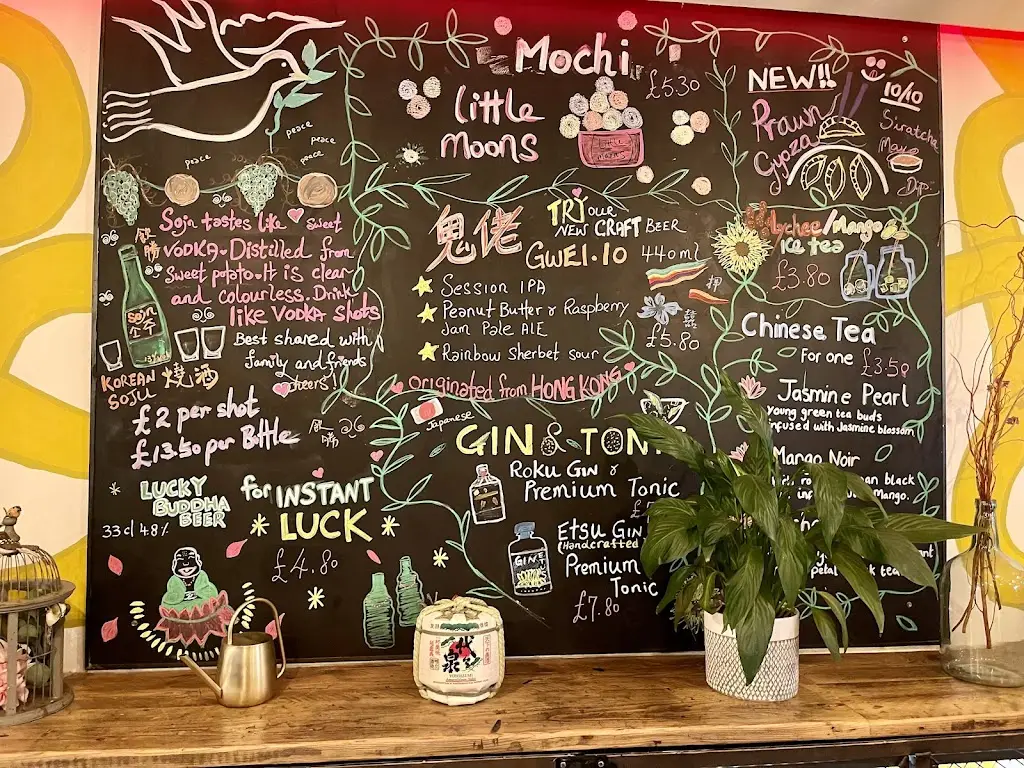 peace
peace
peace
peace
Soju tastes like sweet
VODKA. Distilled from
Sweet potato. It is clear
and colourless. Drink
like VODKA shots
Best shared with
family and friends
cheers!
Soju
소주
KOREAN 燒酒
SOJU
£2 per shot
£13.50 per Bottle
LUCKY
BUDDHA
BEER
33cl 4.8%
for INSTANT
LUCK
£4.80
Mochi
£5.30
Little
Moons
鬼佬
TRY OUR
NEW CRAFT BEER
GWEI.LO 440ml
Session IPA
Peanut Butter & Raspberry
Jam Pale ALE
Rainbow Sherbet sour
£5.80
originated from HONG KONG
Japanese
GIN & TON
ROKU GIN &
Premium Tonic
ETSU GIN
(Handcrafted
Premium
Tonic
£7.80
GIN
NEW!!
10/10
Prawn
Gyoza
Siratcha
Mayo
Dip
Lychee/Mango
ice tea
£3.80
Chinese Tea
For one £3.50
Jasmine Pearl
Young green tea buds
infused with Jasmine blossom
Mango Noir
black
Mango.
petal
tea